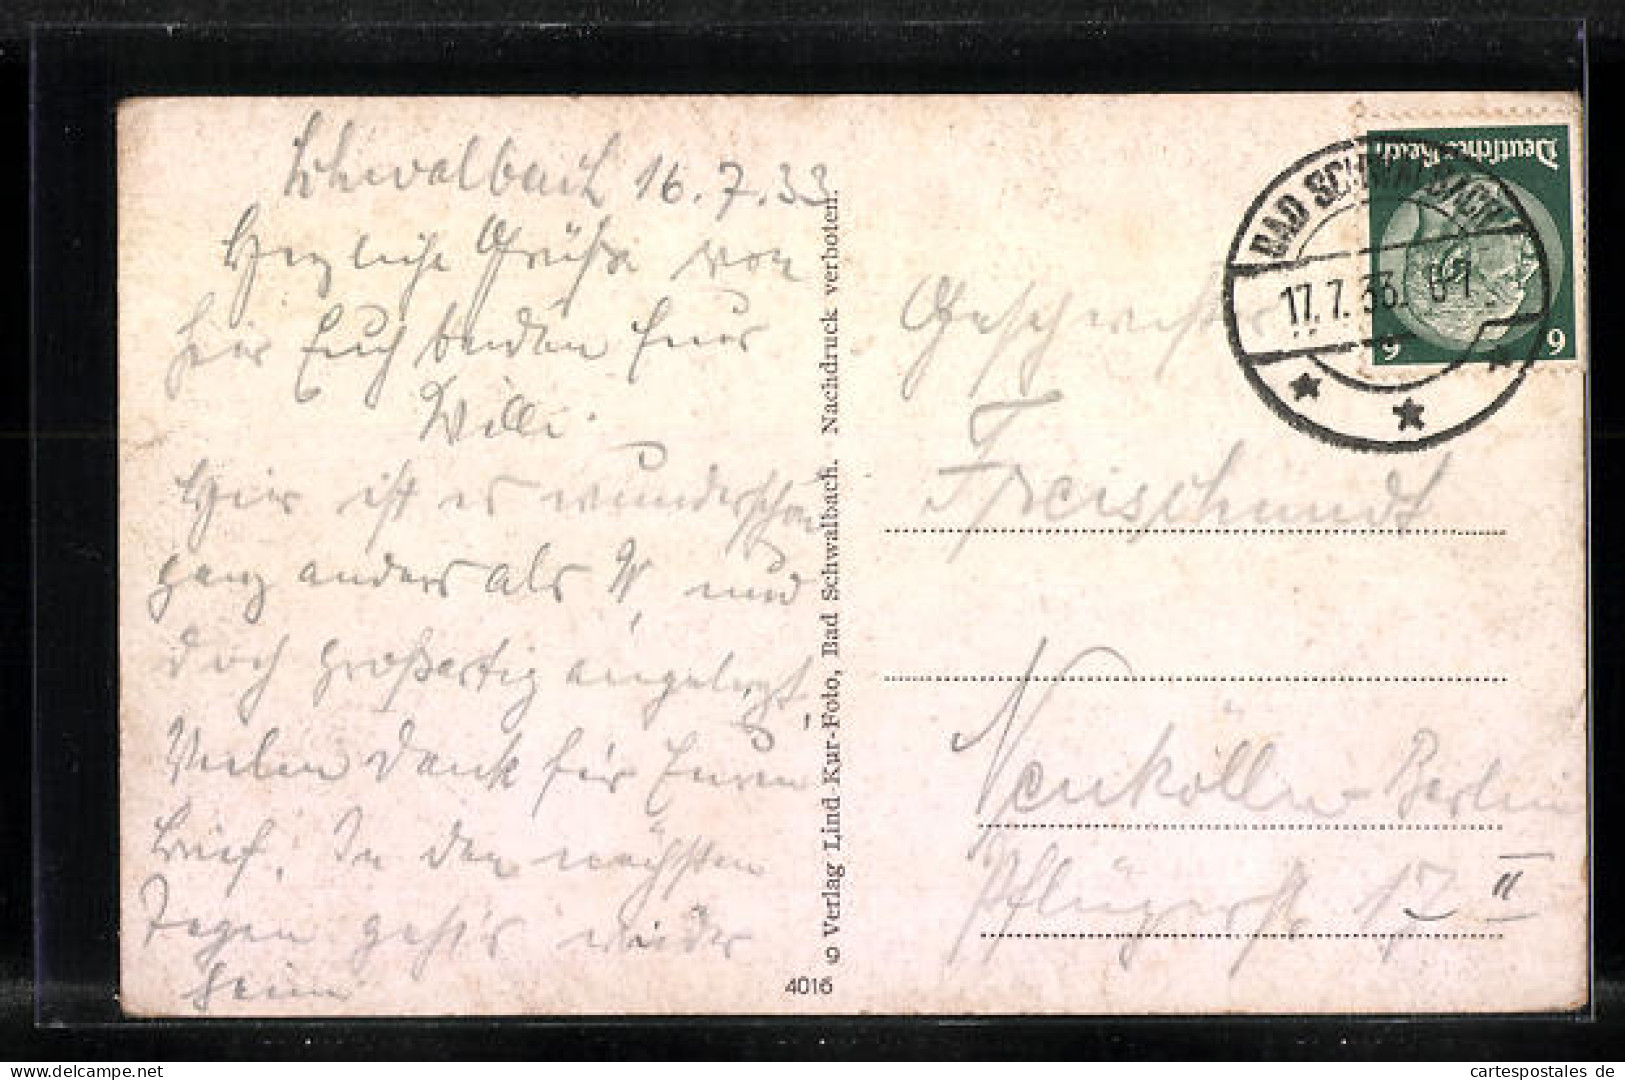 Schwalbach 16.7.33
Herzliche Grüße von
hier Euch beiden Euer
Willi.
Hier ist es wunderschön
ganz anders als W. und
doch großartig angelegt.
Vielen Dank für Euren
Brief. In den nächsten
Tagen geht's wieder
heim
© Verlag Lind-Kur-Foto, Bad Schwalbach. Nachdruck verboten.
4016
Deutsches Reich
6 6
BAD SCHWALBACH
17.7.33. 6-7
Geschwister
Freischundt
Neukölln-Berlin
Pflügerst. 17 II
delcampe.net
cartespostales de